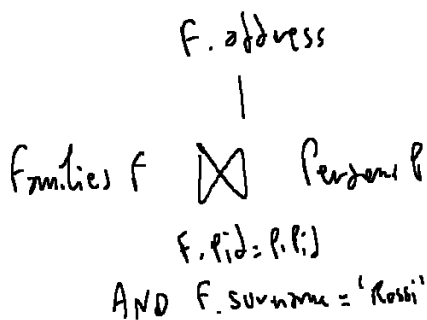 F. address
Families F ⋈ Persons P
F.Pid = P.Pid
AND F. surname = 'Rossi'